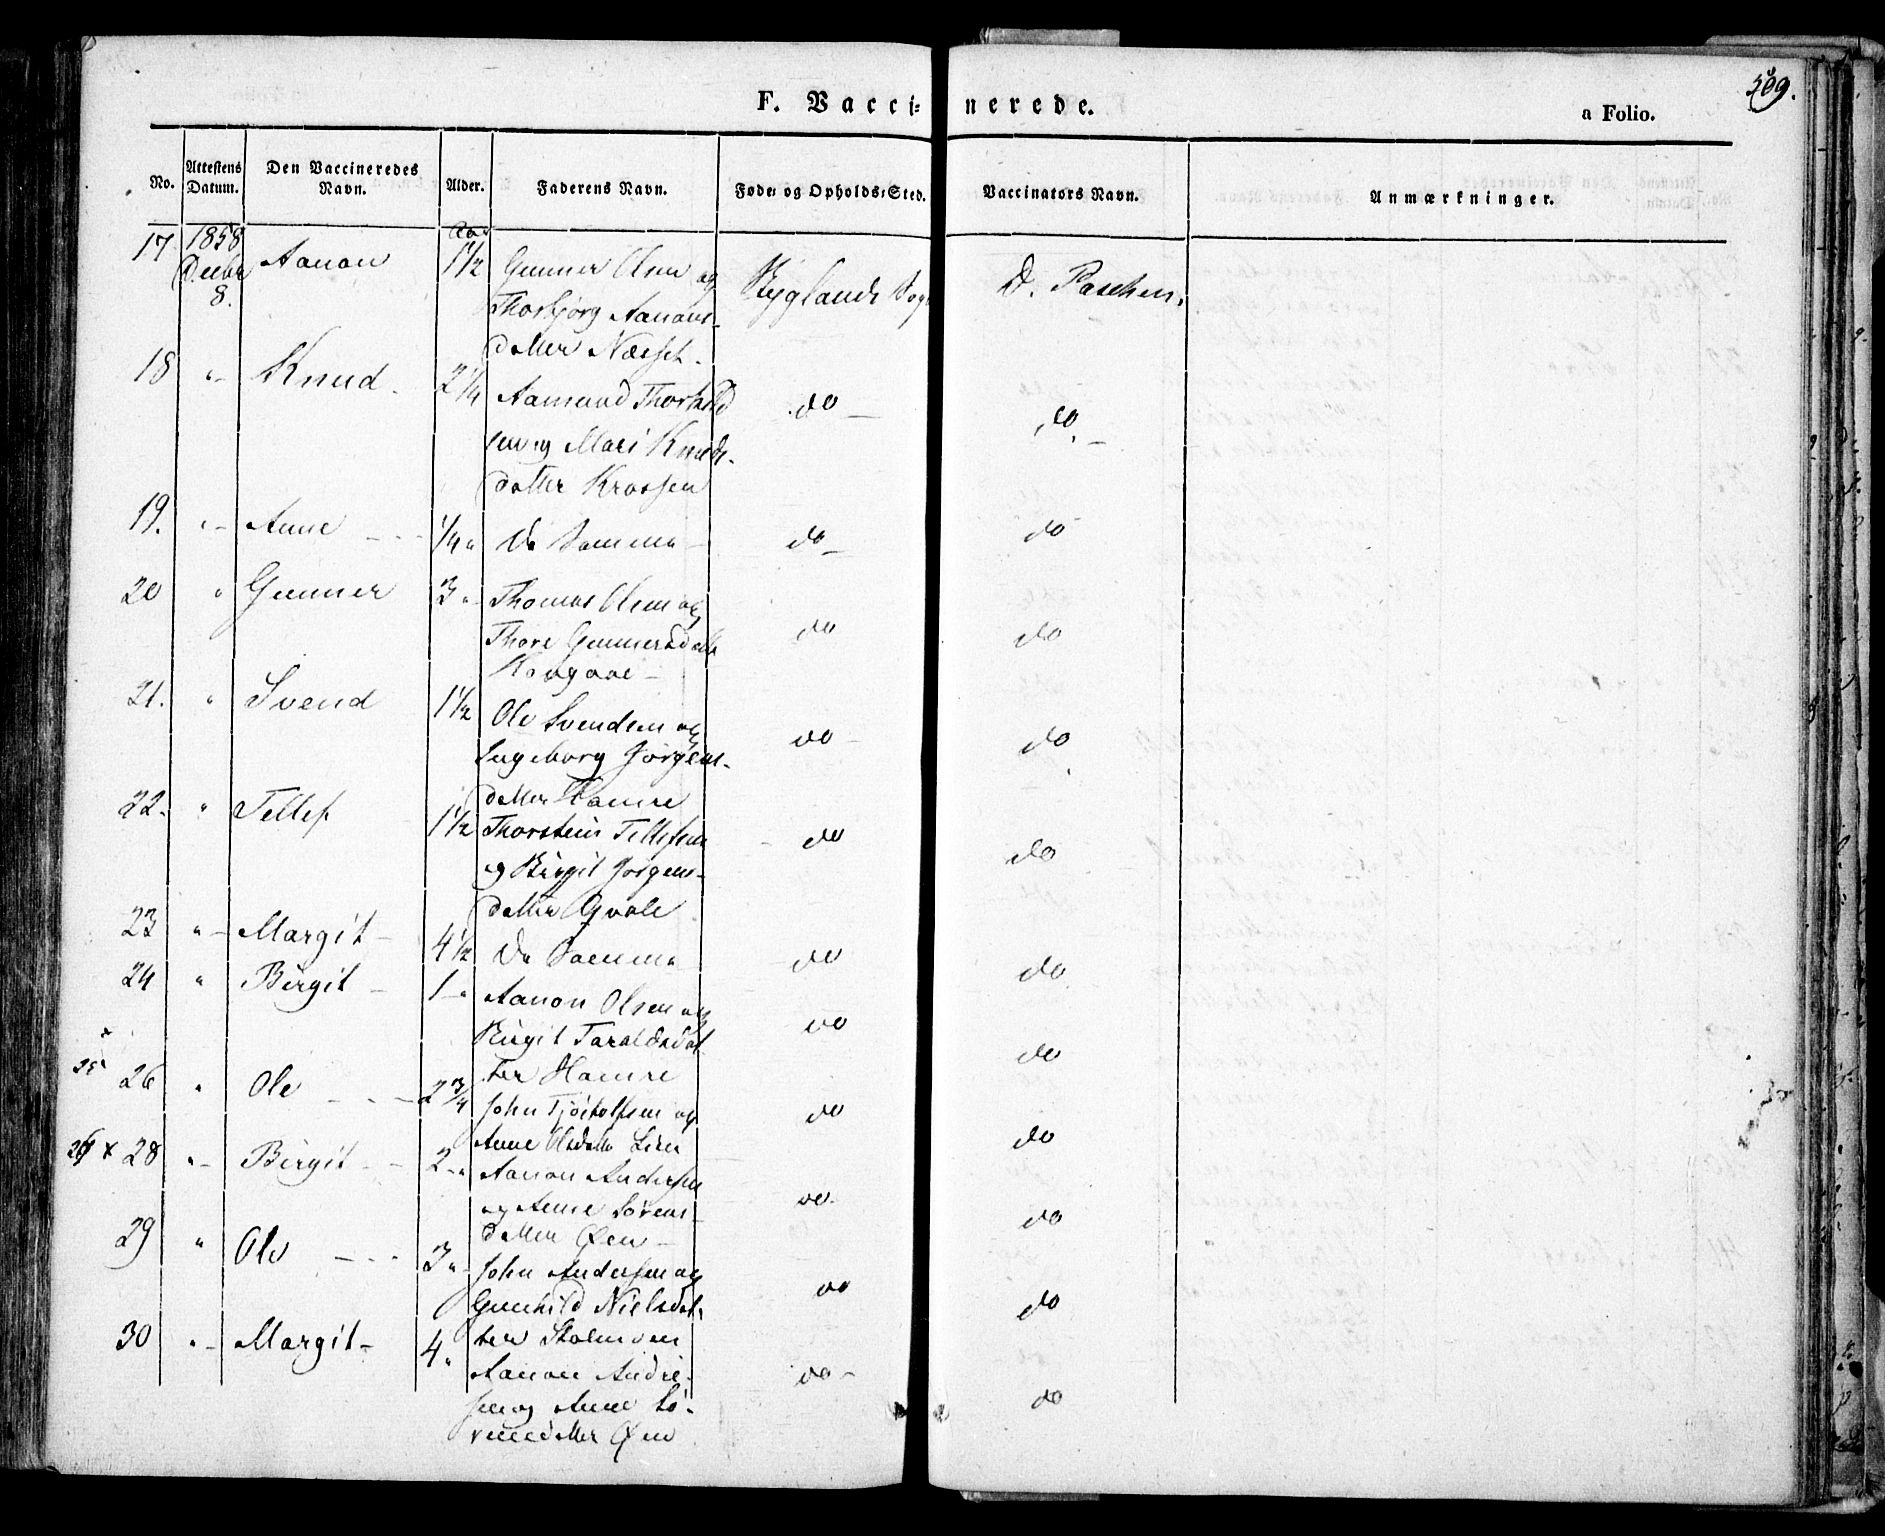 509.
F. Vacci-nerede.
a Folio.
No. Attestens Datum. Den Vaccineredes Navn. Alder. Faderens Navn. Føde- og Opholds-Sted. Vaccinators Navn. Anmærkninger.
17 1858 Decbr 8. Aanon Aar 1½ Gunner Olsen og
Thorbjørg Aanons-
datter Næsset.
Byglands Sogn
D. Paschen.
18 " Knud. 2¼ Aamund Thorkild
sen og Mari Knuds-
datter Krossen
do do
19. " Anne 1/4 " De Samme do do
20 " Gunner 3 " Thomas Olsen og
Thore Gunnersdatter
do do
21. " Svend 1½ Ole Svendsen og
Ingeborg Jørgens-
datter Hamre
do do
22. " Tellef 1½ Thorstein Tellefsen
og Birgit Jørgens-
datter Qvale
do do
23 " Margit 4½ De Samme do do
24 " Birgit 1 " Aanon Olsen og
Birgit Taraldsdat
ter Hamre
do do
25 26 " Ole 2¾ John Tjøstolfsen og
Anne Olsdatter Lien
do do
x 28 " Birgit 2 " Aanon Andersen
og Anne Sørens-
datter Øen
do. do
29 " Ole 3 " John Andersen og
Gunhild Nielsdat-
ter
do do
30 " Margit 4 " Aanon Andre-
sen og Anne Sø-
rensdatter Øen
do do